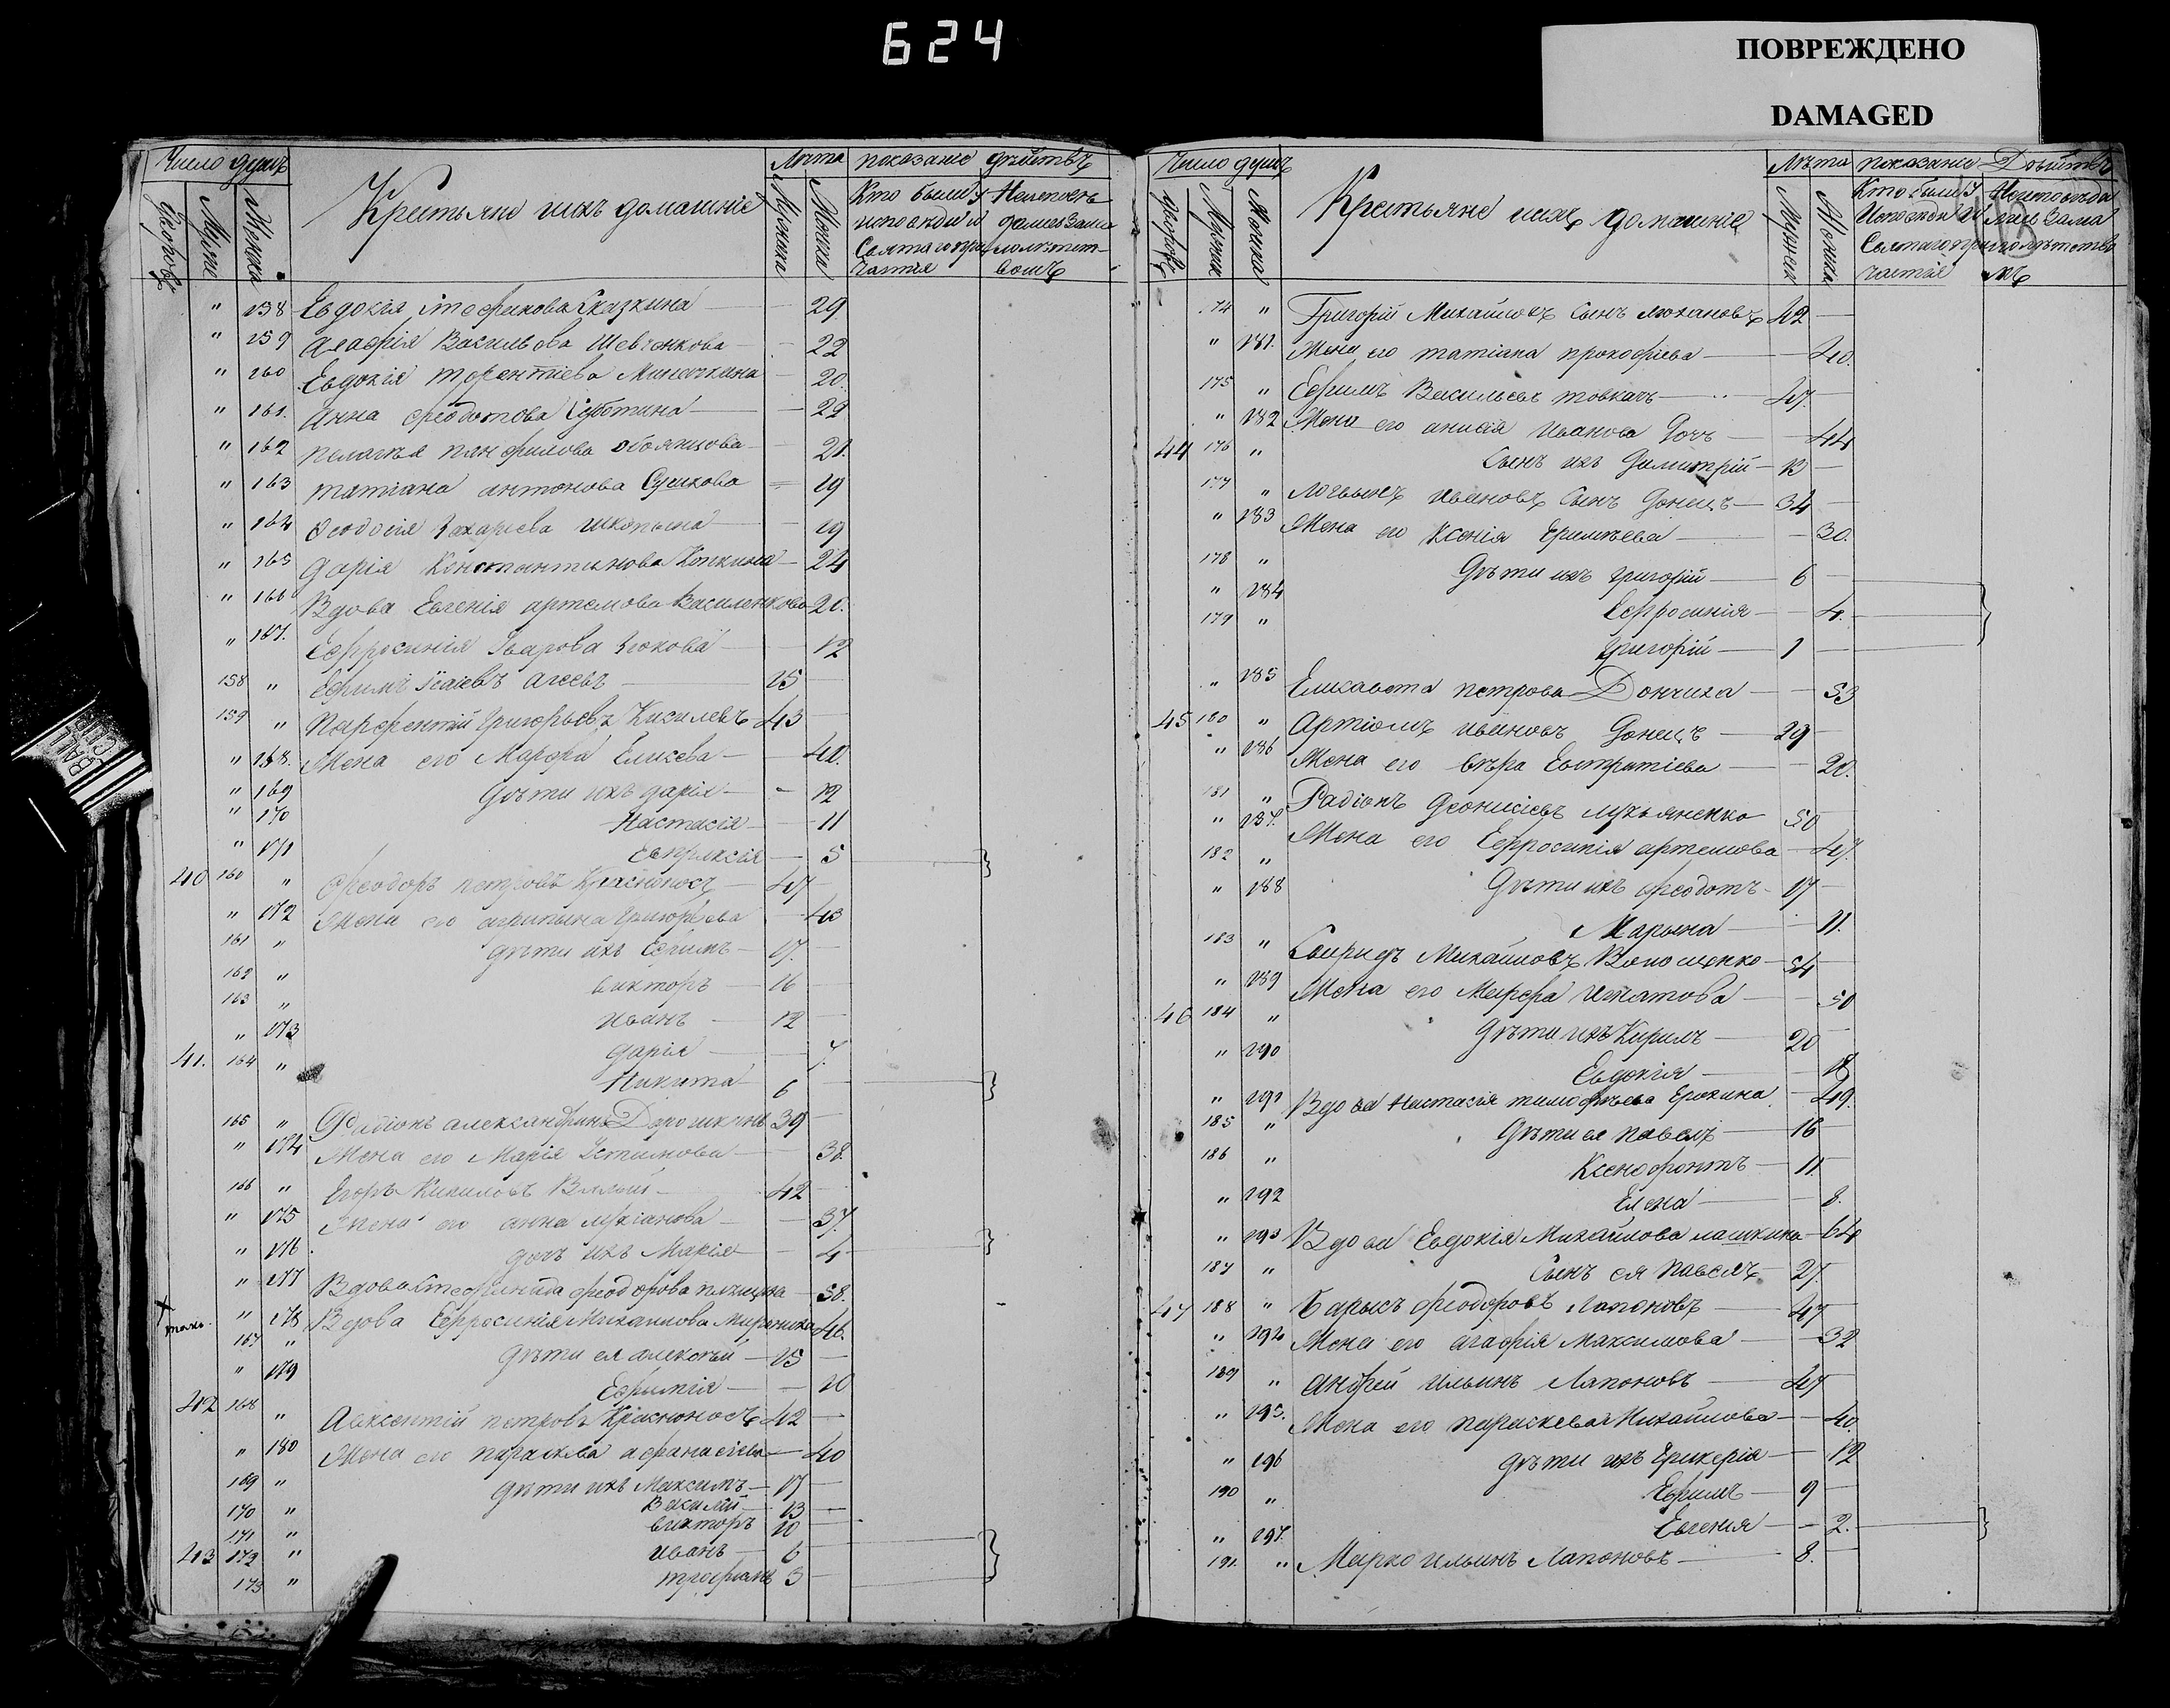 624
ПОВРЕЖДЕНО
DAMAGED
Число душъ
Лѣта показание дѣйствъ
Крестьяне ихъ домашніе
Кто были у
исповеди и
Святаго при
частія
" 158 Евдокія Стефанова Сказкина — 29
" 159 Агафія Васильева Шевченкова — 22
" 160 Евдокія терентіева — 20.
" 161. Анна феодотова Суботина — 29
" 162 пелагѣя панфилова — 21.
" 163 татіана антонова Сушкова — 19
" 164 Феодосія Захаріева — 19
" 165 дарія Константинова Копкина — 24
" 166 Вдова Евгенія артемова Василенкова 20.
" 167. Ефросинія Уварова — 12
158 " Ефимъ Ісаіевъ агеевъ — 15
159 " Парфентій григорьевъ Киселевъ 43
" 168. Жена его Марфа — 40.
" 169 дѣти ихъ дарія — 12
" 170 Настасія — 11
" 171 Евпраксія — 5
40 160 " феодоръ петровъ Красноносъ — 47
" 172 Жена его агрипына григорьева — 43
161 " дѣти ихъ Ефимъ — 17.
162 " викторъ — 16
163 " иванъ — 12
" 173 дарія — 7.
41. 164 " Никита 6
165 " Радіонъ александринъ Дорошкинъ 39
" 174 Жена его Марія Устимова — 38.
166 " Егоръ — 42
" 175 Жена его анна лукіанова — 37.
" 176 дочь ихъ Марія — 4
" 177 Вдова Стефанида феодорова — 58.
" 178 Вдова Ефросинія Михаилова 46.
167 " дѣти ея алексѣй — 15
" 179 Ефимія — 10
42 168 " Авксентій петровъ Красноносъ 42
" 180 Жена его параскева афанасіева — 40
169 " дѣти ихъ Максимъ — 17
170 " Василій — 13
171 " викторъ 10
43 172 " иванъ — 6
173 " трофимъ 3
Число душъ
Лѣта показание Дѣйствъ
Крестьяне ихъ домашніе
Кто были у
Исповеди и
Святаго при
частія
74 " Григорій Михайловъ Сынъ 42
" 181. Жена его татіана прокофіева — 40.
175 " Ефимъ Васильевъ товкачъ — 47.
" 182 Жена его анисія иванова дочь — 44
44 176 " Сынъ ихъ Димитрій — 13
177 " Логвинъ ивановъ Сынъ Донецъ — 34
" 183 Жена его Ксенія — 30.
178 " дѣти ихъ григорій — 6
" 184 Ефросинія — 4.
179 " григорій — 1
" 185 Елисавета петрова Дончиха — 53
45 180 " Артіомъ ивановъ Донецъ — 29
" 186 Жена его вѣра Евстратіева — 20.
181 " Радіонъ Деонисіевъ лукьяненко 50
" 187. Жена его Ефросинія артемова — 47.
182 " дѣти ихъ феодотъ — 17
" 188 Марына — 11.
183 " Свиридъ Михайловъ Волощенко — 54
" 189 Жена его Марфа игнатова — 50
46 184 " дѣти ихъ Кирилъ — 20
" 190 Евдокія — 18
" 191 Вдова Настасія тимофѣева Ерохина — 49.
185 " дѣти ея павелъ — 16
186 " Ксенофонтъ — 11.
" 192 Елена — 8.
" 193 Вдова Евдокія Михайлова лашкина — 64
187 " Сынъ ея павелъ — 27.
47 188 " Барысъ феодоровъ Лапоновъ — 47
" 194 Жена его агафія Максимова — 32
189 " андрей ильинъ Лапоновъ — 47
" 195. Жена его параскева Михайлова — 40.
" 196 дѣти ихъ — 12
190 " Ефимъ — 9
" 197. Евгенія — 2.
191. " Марко ильинъ Лапоновъ — 8.